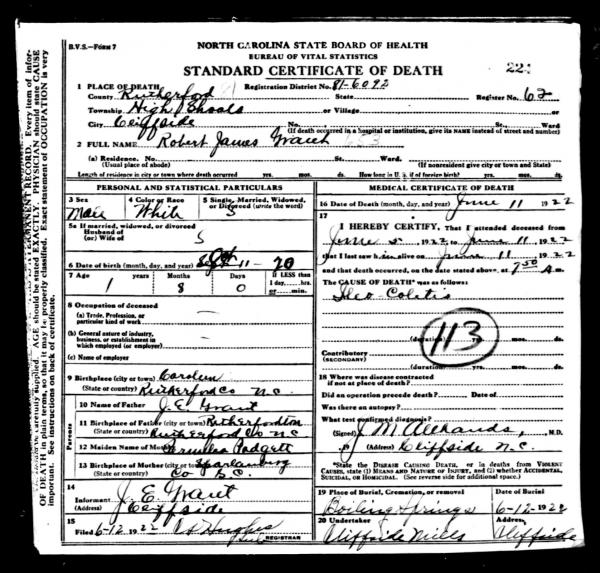 B.V.S.—FORM 7
NORTH CAROLINA STATE BOARD OF HEALTH
BUREAU OF VITAL STATISTICS
STANDARD CERTIFICATE OF DEATH
1 PLACE OF DEATH
Registration District No. 81-6092
County Rutherford
Register No. 62
Township High Shoals or Village
City Cliffside No. St. Ward
(If death occurred in a hospital or institution, give its NAME instead of street and number)
2 FULL NAME Robert James Grant
(a) Residence. No. St. Ward.
(Usual place of abode) (If nonresident give city or town and State)
Length of residence in city or town where death occurred yrs. mos. ds. How long in U. S. if of foreign birth? yrs. mos. ds.
PERSONAL AND STATISTICAL PARTICULARS
3 Sex 4 Color or Race 5 Single, Married, Widowed, or Divorced (write the word)
Male White S
5a If married, widowed, or divorced
Husband of
(or) Wife of S
6 Date of birth (month, day, and year) Oct 11-20
7 Age Years Months Days If LESS than
1 8 0 1 day, hrs. or min.
8 Occupation of deceased
(a) Trade, Profession, or particular kind of work
(b) General nature of industry, business, or establishment in which employed (or employer)
(c) Name of employer
9 Birthplace (city or town) Caroleen
(State or country) Rutherford Co N.C.
10 Name of Father J. E. Grant
11 Birthplace of Father (city or town) Rutherfordton
(State or country) Rutherford Co N C
12 Maiden Name of Mother Padgett
13 Birthplace of Mother (city or town) Spartanburg
(State or country) Co S.C.
Parents
14
Informant J. E. Grant
(Address) Cliffside
15
Filed 6-12 1922 Hughes
REGISTRAR
MEDICAL CERTIFICATE OF DEATH
16 Date of Death (month, day, and year) June 11 1922
17
I HEREBY CERTIFY, That I attended deceased
from June 5 1922 to June 11 1922
that I last saw him alive on June 11 1922
and that death occurred, on the date stated above, at 7:50 A m.
The CAUSE OF DEATH* was as follows:
Ileo-Colitis
113
(duration) yrs. mos. ds.
Contributory
(SECONDARY)
(duration) yrs. mos. ds.
18 Where was disease contracted
if not at place of death?
Did an operation precede death? Date of
Was there an autopsy?
What test confirmed diagnosis?
(Signed) J. M. Allhands, M.D.
(Address) Cliffside N.C.
*State the DISEASE CAUSING DEATH, or in deaths from VIOLENT CAUSES, state (1) MEANS AND NATURE OF INJURY, and (2) whether ACCIDENTAL, SUICIDAL, or HOMICIDAL. (See reverse side for additional space.)
19 Place of Burial, Cremation, or removal Date of Burial
Boiling Springs 6-12-1922
20 Undertaker Address,
Cliffside Mills Cliffside